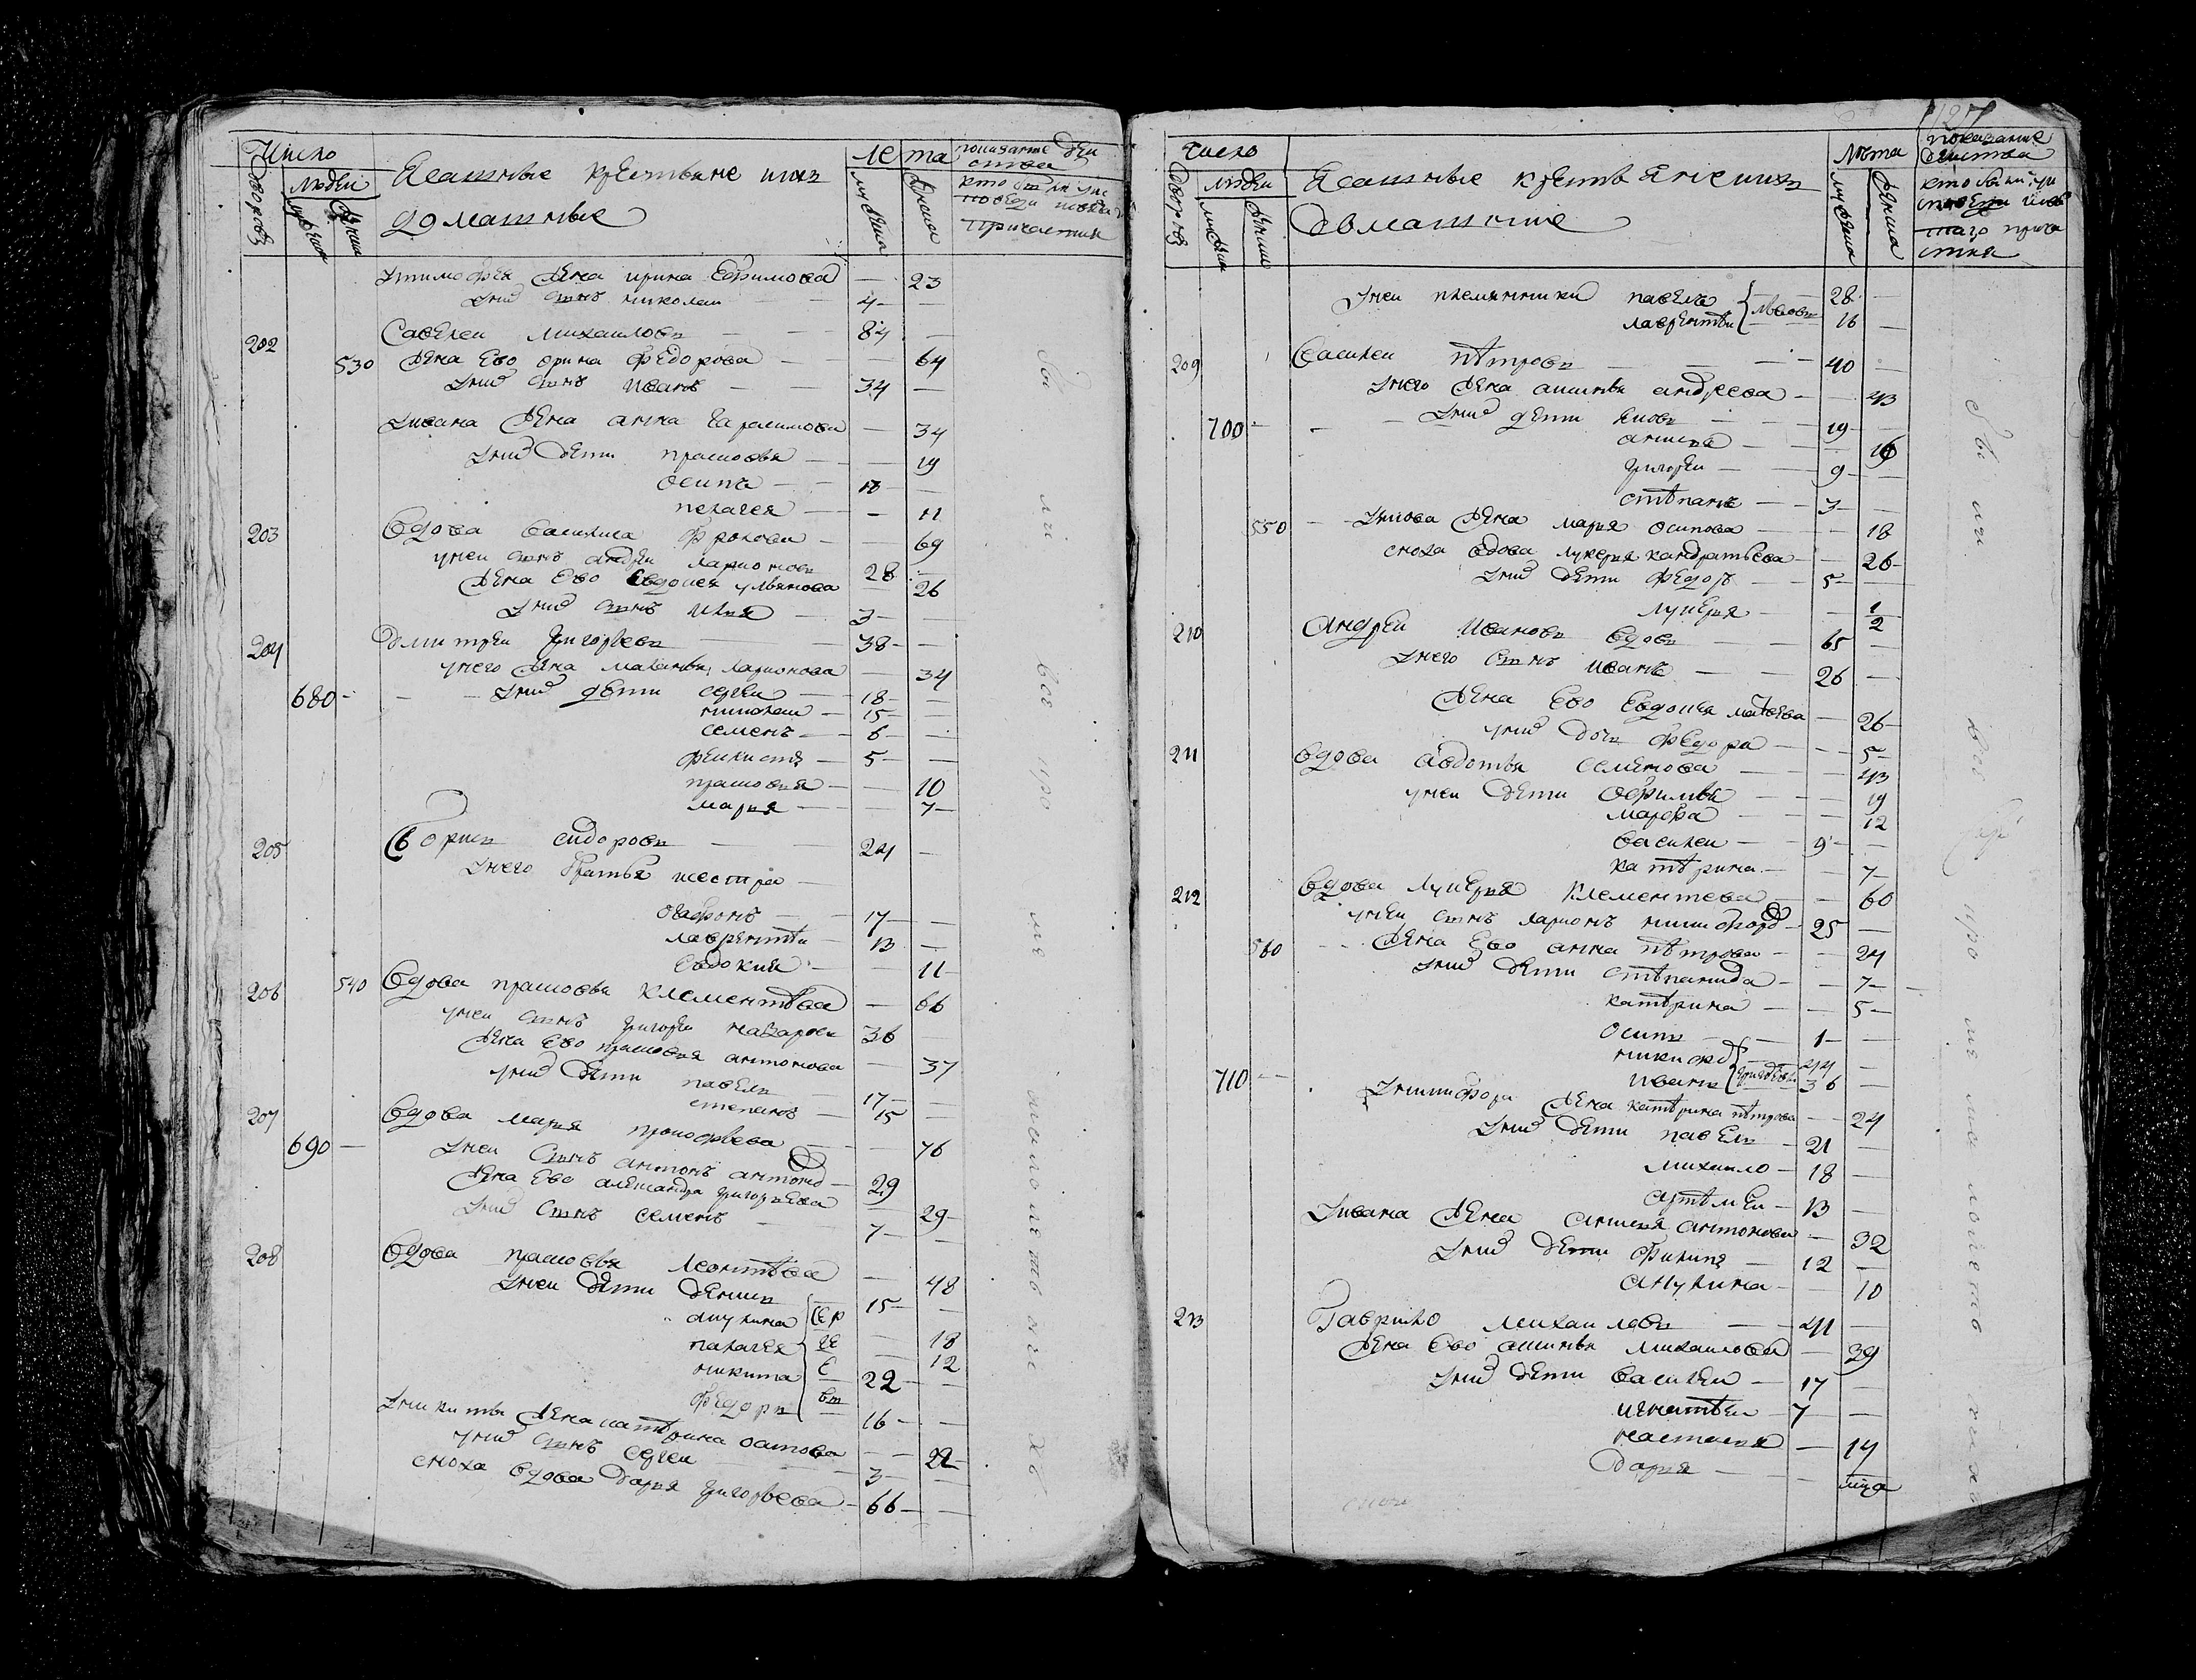 Число
людеи
дворовъ
мужеска
женска
Ясашные крестьяне ихъ
домашные
лета
мужеска
женска
показание деи
ства
кто былъ уис
поведи исвята
причастия
утимофея жена ирина ефимова — 23
унихъ сынъ николаи — 4
202 Савелеи михаиловъ — 84
530 жена ево орина федорова — 64
унихъ сынъ иванъ — 34
уивана жена анна гарасимова — 34
унихъ дети прасковья — 19
осипъ — 18
пелагея — 11
203 вдова василиса фролова — 69
унеи сынъ андреи ларионовъ 28
жена ево евдокея ульянова 26
унихъ сынъ илья — 3
204 дмитреи григорьевъ — 38
унего жена маланья ларионова — 34
680 унихъ дети сергеи — 18
николаи — 15
семенъ — 6
феклистъ — 5
прасковия — 10
мария — 7
205 борисъ сидоровъ — 24
унего братья исестра —
агафонъ — 17
лаврентеи — 13
евдокия — 11
206 540 вдова прасковья клементьева — 66
унеи сынъ григореи назаровъ 36
жена ево прасковия антонова — 37
унихъ дети павелъ — 17
степанъ — 15
207 вдова мария прокофьева — 76
690 унеи сынъ антонъ антоновъ — 29
жена ево александра григорьева — 29
унихъ сынъ семенъ — 7
208 вдова прасковья леонтьева — 48
унеи дети денисъ 15
акулина 18
палагея 12
никита 22
федоръ 16
сер
ге
е
вы
уникиты жена катерина осипова — 22
унихъ сынъ сергеи — 3
сноха вдова дарья григорьева — 66
были все
127
число
людеи
дворовъ
мужеска
женска
Ясашные крестьяне ихъ
домашние
лѣта
мужеска
женска
показание
деиства
кто былъ уи
споведи исвя
таго прича
стия
унеи племянники павелъ 28
лаврентеи 16
209 василеи петровъ — 40
унего жена аксинья андреева — 43
700 унихъ дети яковъ — 19
анисья — 16
григореи — 9
стѣпанъ — 3
550 уякова жена марья осипова — 18
сноха вдова лукерья кандратьева — 26
унихъ дети федоръ — 5
лукерья — 1/2
210 андреи ивановъ вдовъ — 65
унего сынъ иванъ — 26
жена ево евдокея матвеева — 26
унихъ дочь федора — 5
211 вдова авдотья семенова — 43
унеи дети офимья — 19
марфа — 12
василеи — 9
катѣрина — 7
212 вдова лукерья клементева — 60
унеи сынъ ларионъ никифоров — 25
560 жена ево анна петрова — 24
унихъ дети стѣпанида — 7
катѣрина — 5
осипъ — 1
никифоръ 44
710 иванъ григорьевы 36
уникифора жена катѣрина пѣтрова — 24
унихъ дети павелъ — 21
михаило — 18
артѣмеи — 13
уивана жена аксинья антонова — 32
унихъ дети филипъ — 12
акулина — 10
213 гаврило михаиловъ — 41
жена ево аксинья михаилова — 39
унихъ дети василеи — 17
игнатеи — 7
настасья — 14
дарья —
были все